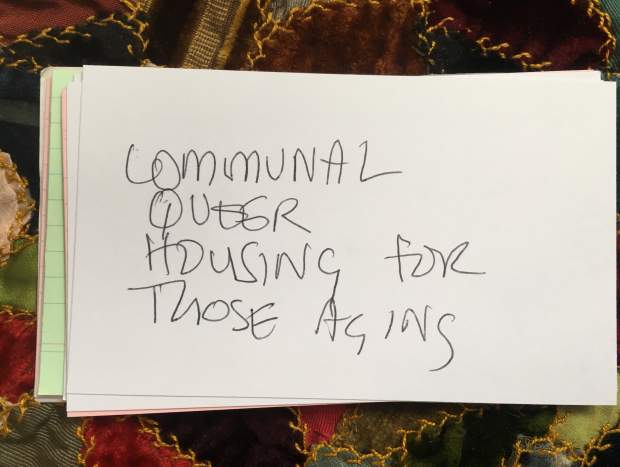 COMMUNAL
QUEER
HOUSING FOR
THOSE AGING